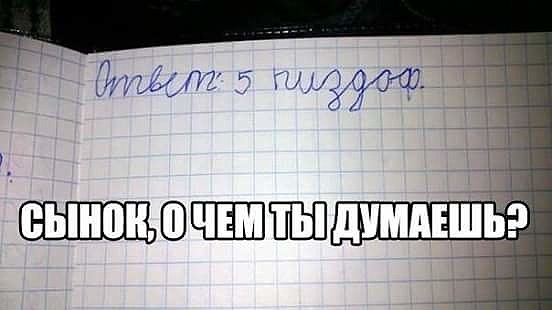 Ответ: 5 пиздоф.
СЫНОК, О ЧЕМ ТЫ ДУМАЕШЬ?